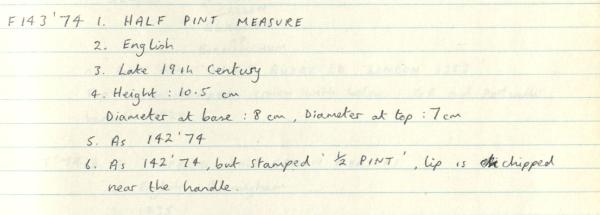 F143'74 1. HALF PINT MEASURE
2. English
3. Late 19th Century
4. Height : 10.5 cm
Diameter at base : 8 cm, Diameter at top : 7 cm
5. As 142'74
6. As 142'74, but stamped '½ PINT', lip is chipped
near the handle.